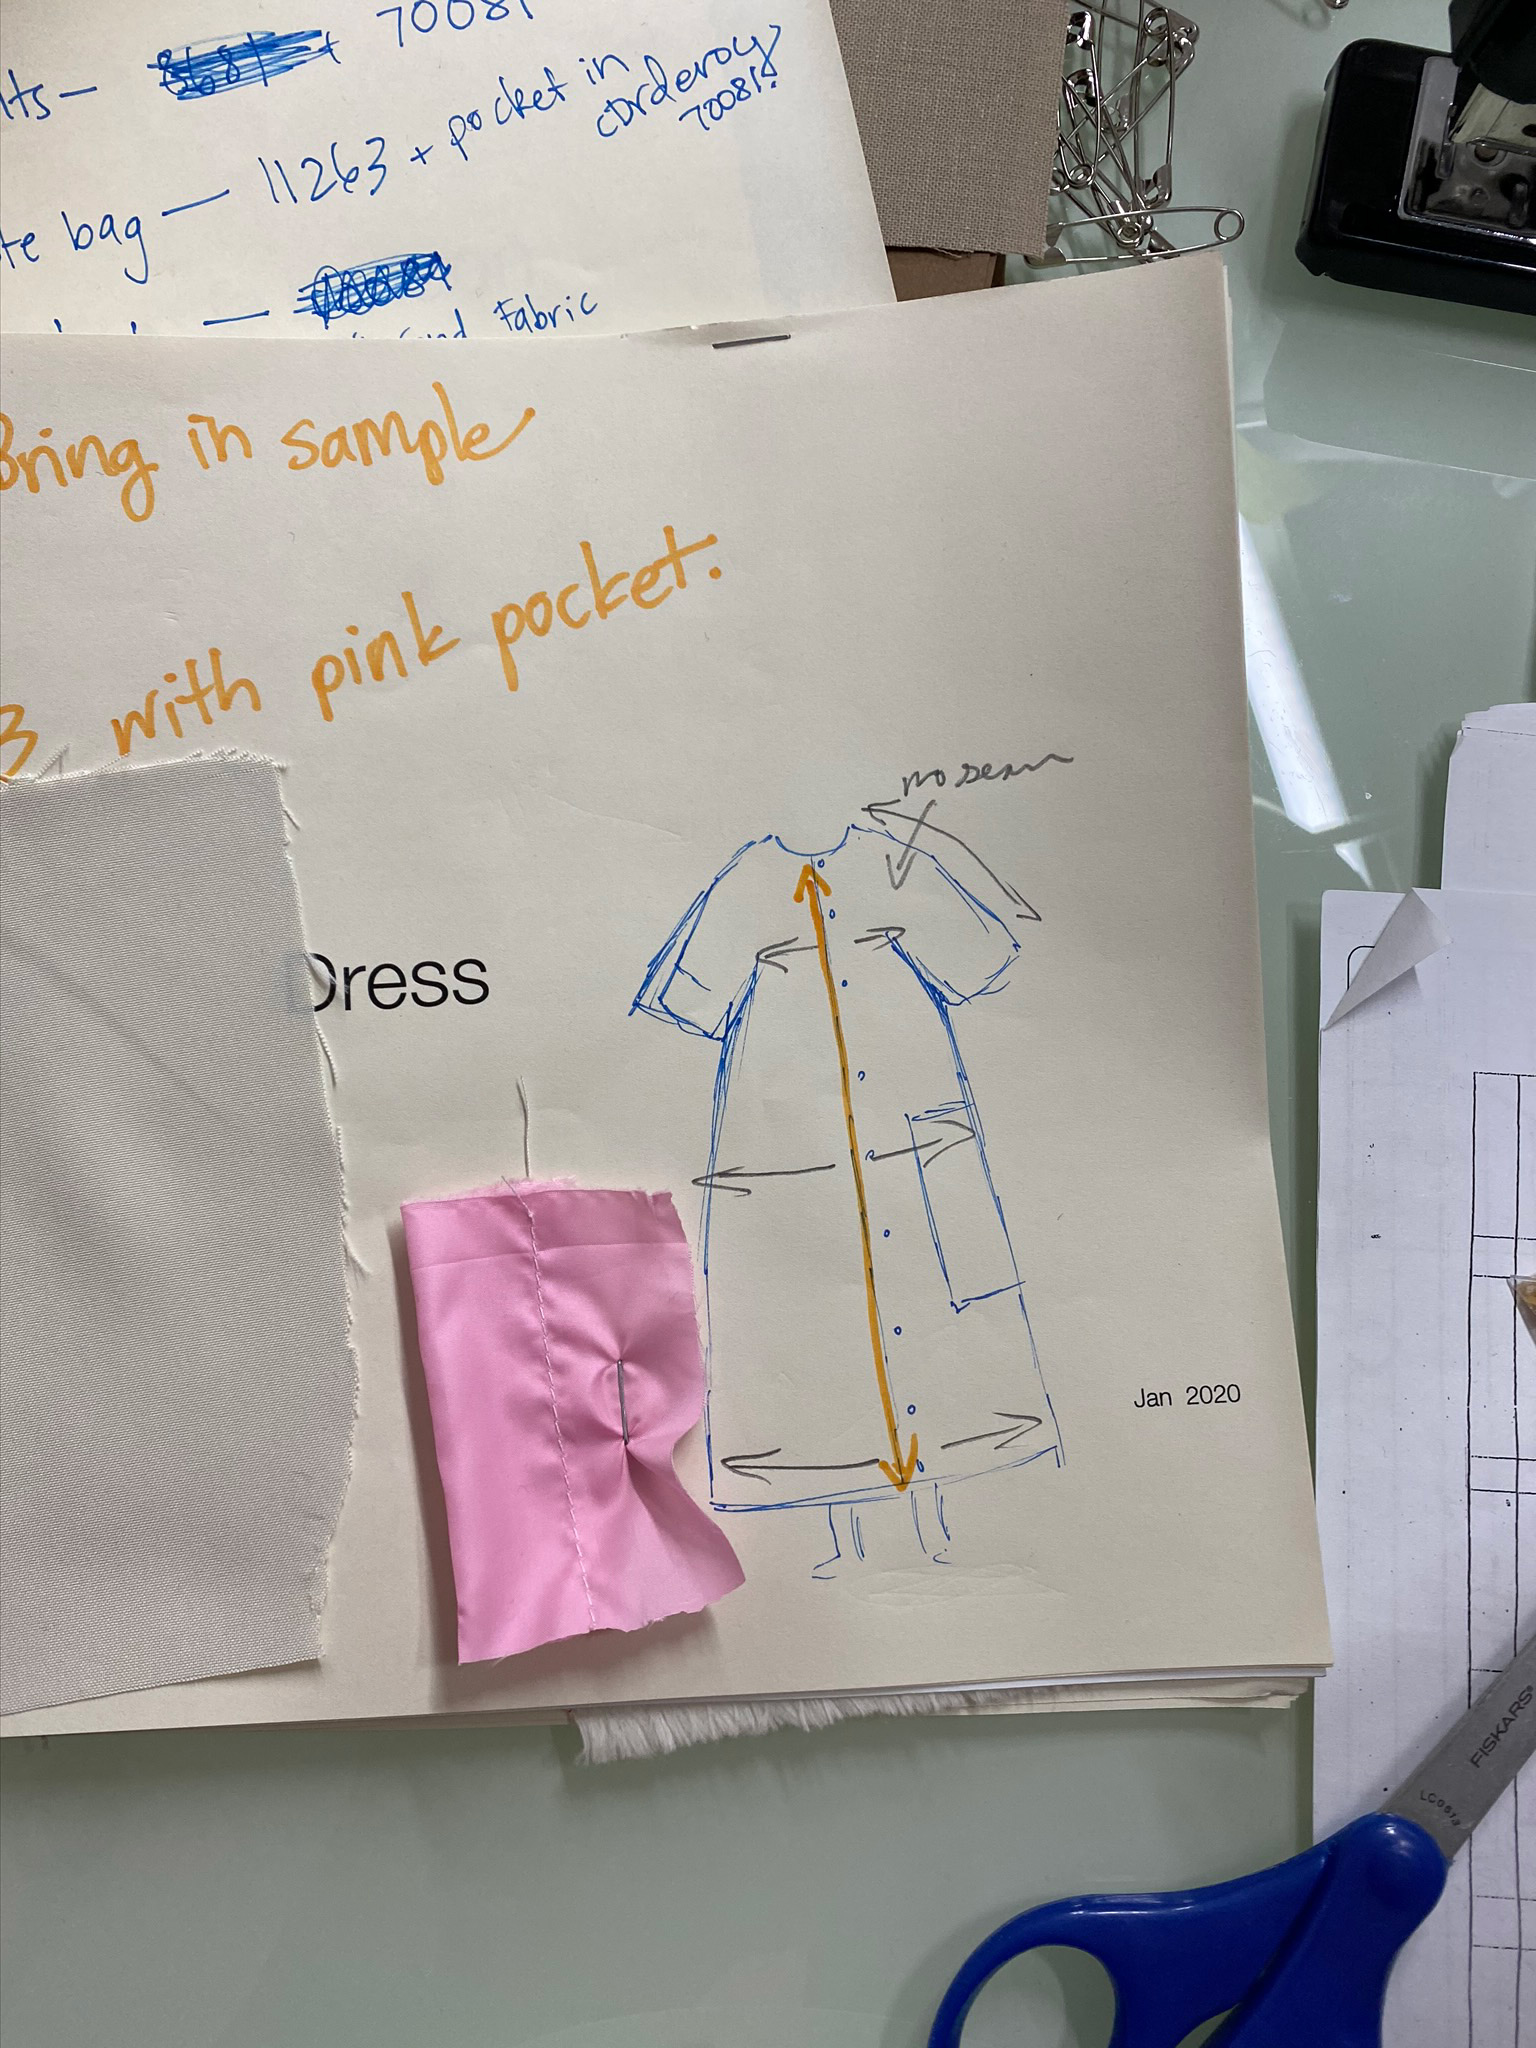 70081
lts — 8681 +
11263 + pocket in
corderoy
70081?
te bag —
Fabric
Bring in sample
3 with pink pocket.
no seam
Dress
Jan 2020
FISKARS